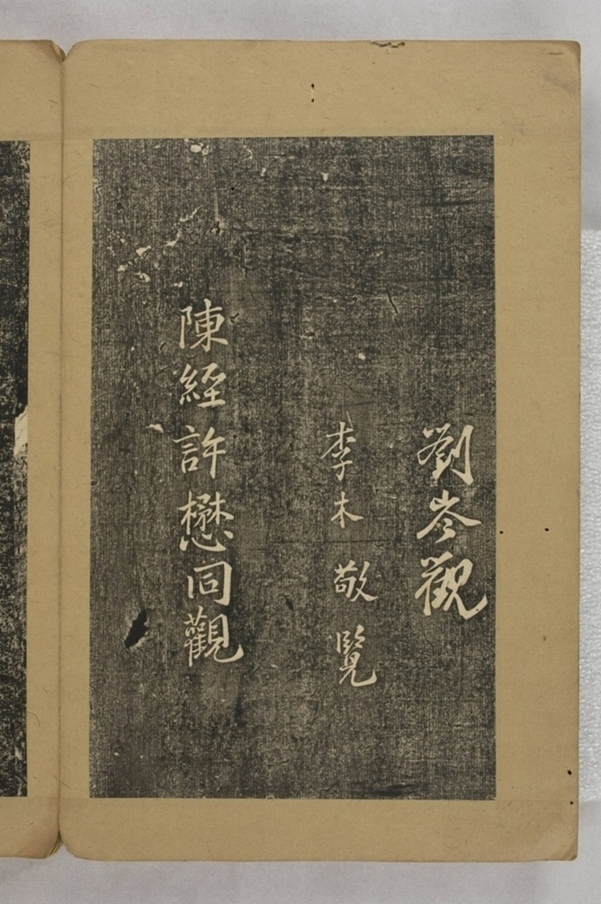 劉岑觀
李木敬覽
陳經許懋同觀